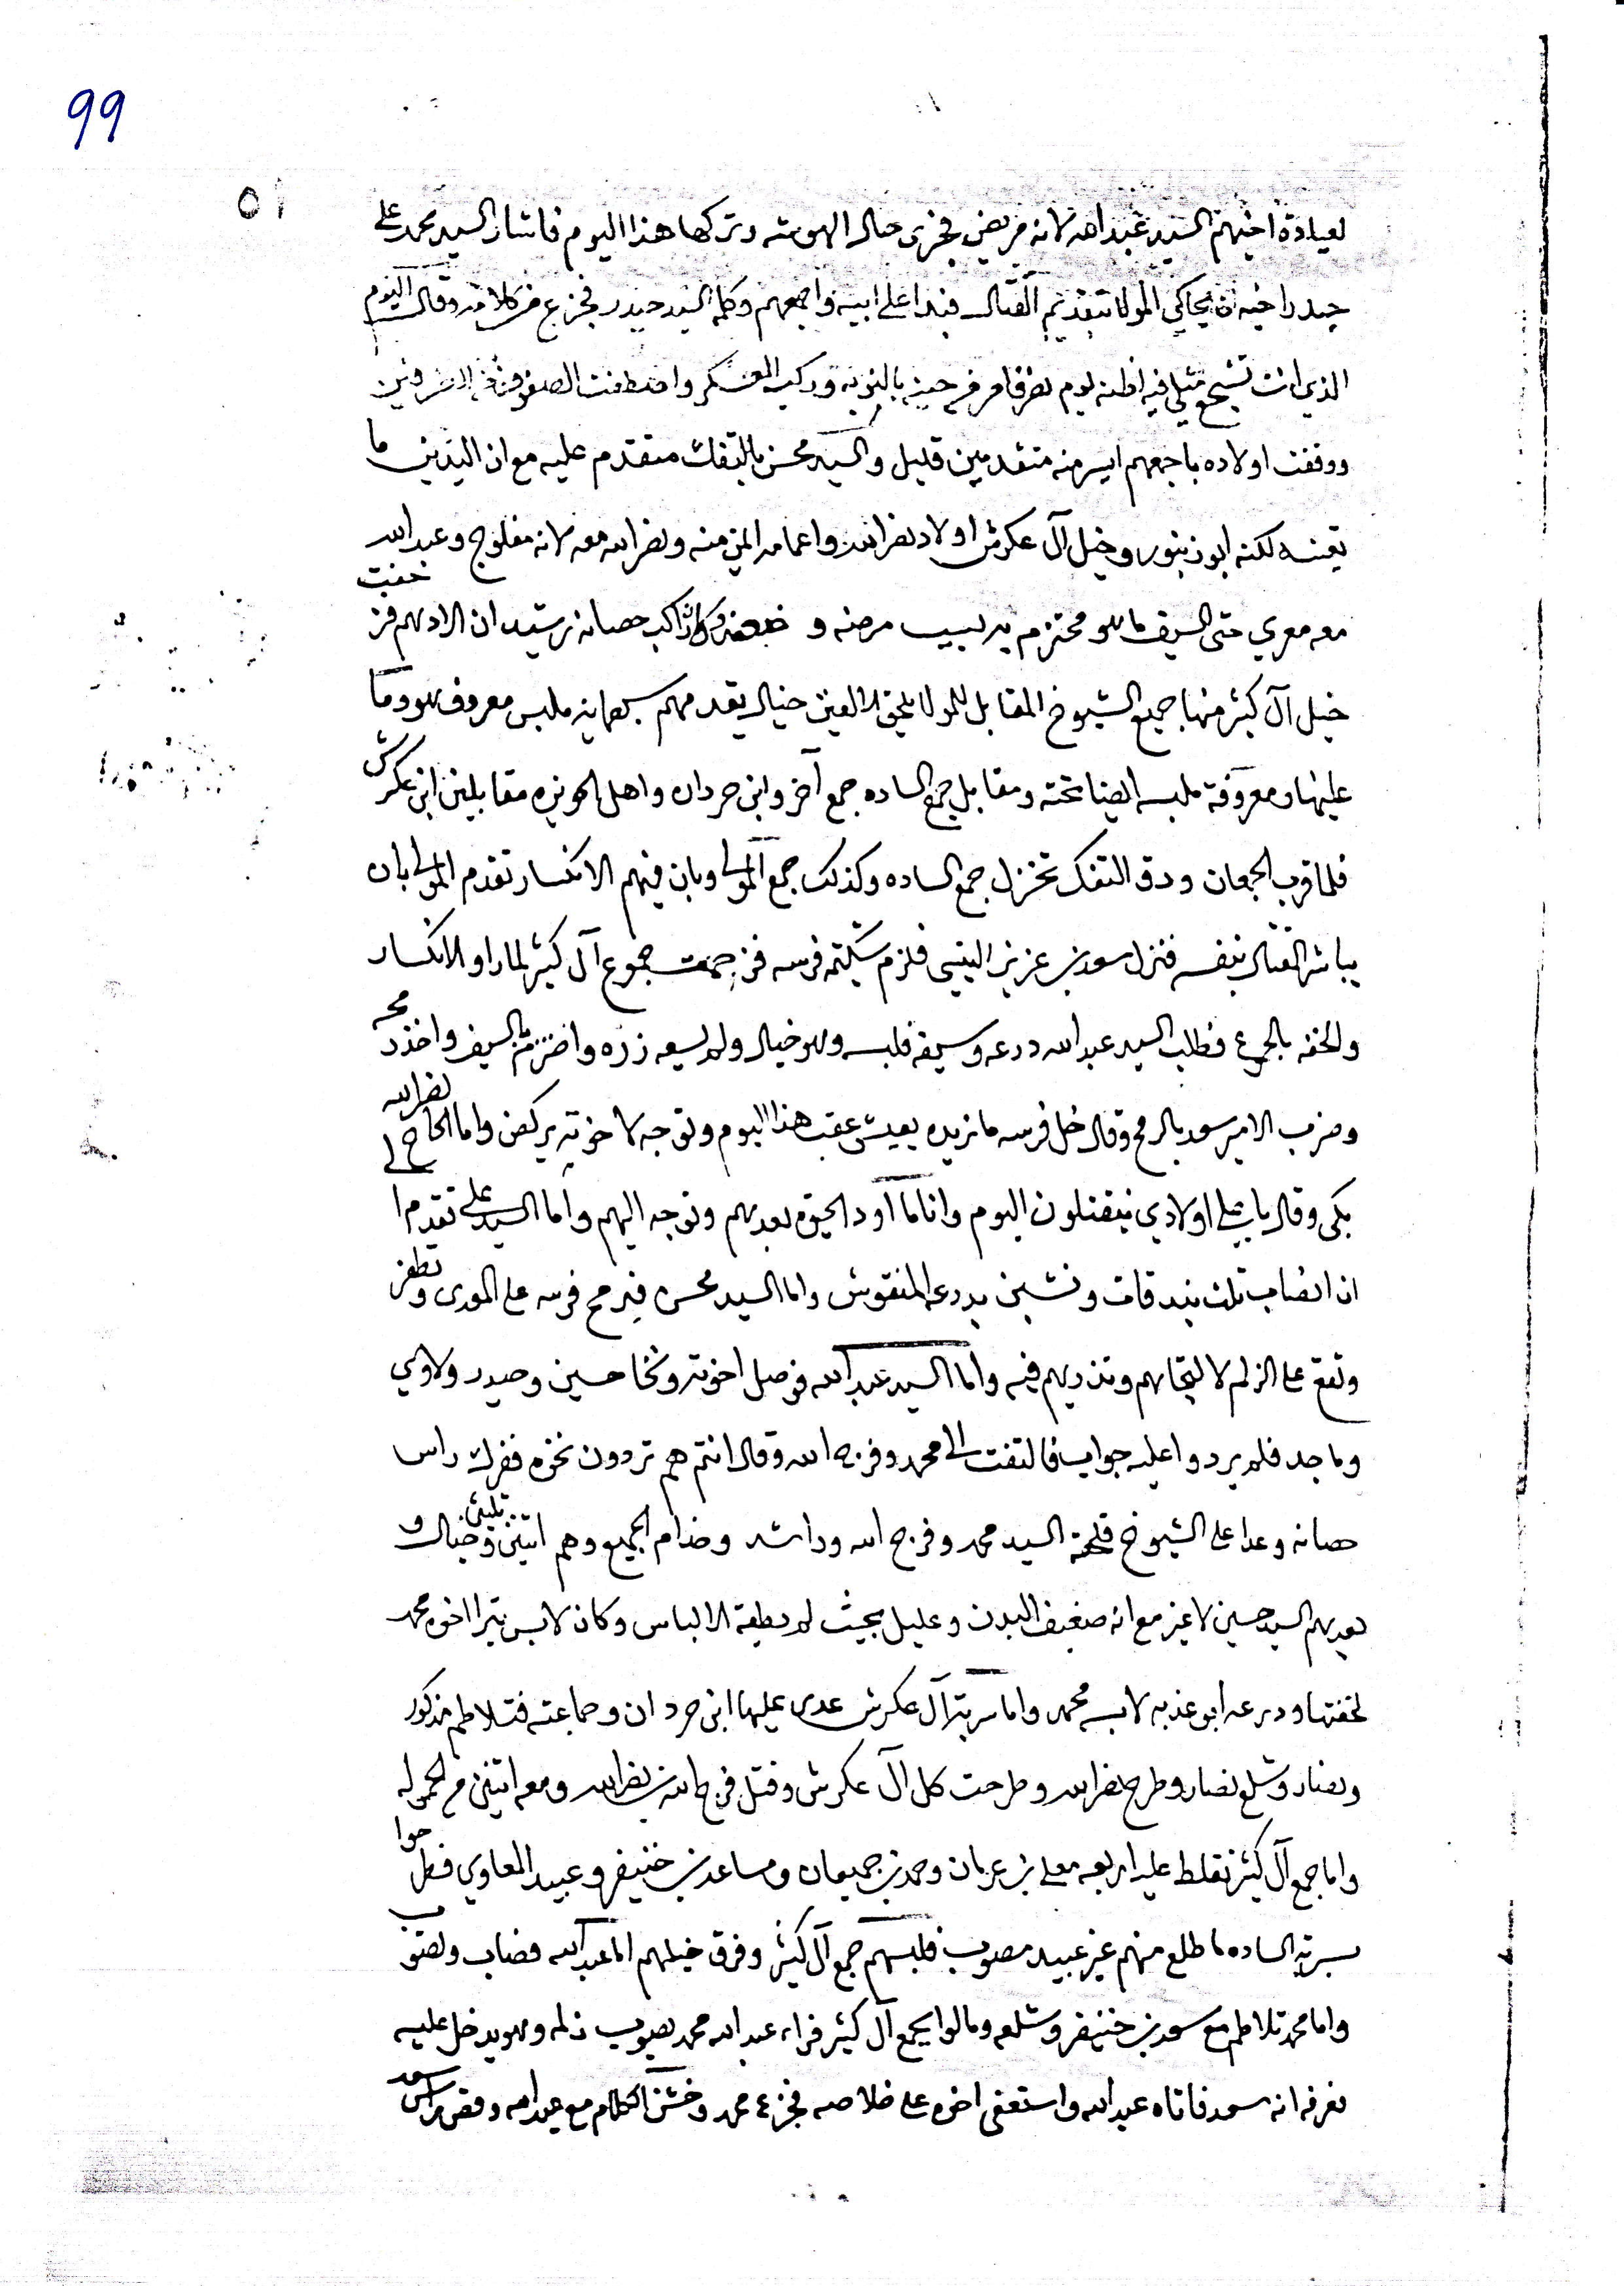 99
٥١
لعيادة اخيهم السيد عبدالله لانه مريض فجزى حال الهوشه وتركها هذا اليوم فاشار السيد محمد على
حيدر اخيه ان يحاكي المولا بتقديم القتال فبدا على ابيه واجمعهم وكلمه السيد حيدر فجزع من كلامه وقال اليوم
الذي انت تشجع مثلي فيه اظنه يوم وركب العسكر واصطفت الصفوف
ووقفت اولاده باجمعهم ايسر منه متقدمين قليل والسيد محسن بالتفك متقدم عليه مع ان اليدين ما
تعينه لكنه ابو زنبور وخيل آل عكرش اولاد نصرالله واعمامه ايمن منه ونصرالله معه لانه مفلوج وعبدالله
معه معري حتى السيف ما هو محتزم به لسبب مرضه و راكب حصانه رشيدان الادهم فز
خيل آل كثير منها جميع الشيوخ المقابل للمولا يلحق لالفين خيال يقدمهم ملبس معروف هو وما
عليها ومعروفة ملبسه ايضا تحته ومقابل جمع الساده جمع آخر وابن حردان واهل الحويزه مقابلين ابن عكرش
فلما قرب الجمعان ودق التفك تخزل جمع الساده وكذلك جمع المولى وبان فيهم الانكسار تقدم المولى بان
يباشر القتال بنفسه فنزل سعد بن عزيز النيسي فلزم شكيمة فرسه فزحمت جموع آل كثير لما راو الانكسار
والخفه بالجمع فطلب السيد عبدالله درعه وسيفه فلبسه وهو خيال ولم يسعه زره واحتزم بالسيف واخذ رمحه
وضرب الامير سعد بالرمح وقال خل فرسه ما نريده يعيش عقب هذا اليوم وتوجه لاخوته يركض واما الحاج نصرالله
بكى وقال يا علي اولادي ينقتلون اليوم وانا ما اود الحيوة بعدهم وتوجه اليهم واما السيد علي تقدم الى
ان انصاب ثلث بندقات ونشبن بدرعه المنقوش واما السيد محسن فيرمح فرسه على الموري وتطفر
وتقع على الزلم لالتجائهم وتذريهم فيه واما السيد عبدالله فوصل اخوته ونخا حسين وحيدر ولاوي
وماجد فلم يردوا عليه جواب فالتفت الى محمد وفرج الله وقال انتم هم تردون نخوه ففرك راس
حصانه وعدا على الشيوخ فلحقه السيد محمد وفرج الله وراشد وخدام الجميع وهم اثنين وثلثين خيال و
بعدهم السيد حسين لا غير مع انه ضعيف البدن وعليل بحيث لم يطيق الالباس وكان لابس تيرا اخوه محمد
لخفتها ودرعه ابو عذبه لابسه محمد واما سربة آل عكرش عدى عليها ابن حردان وجماعته فتلاطم مذكور
ونصار وشلع نصار وطرح نصرالله وطرحت كل آل عكرش وقتل فرج الله بن نصرالله ومعه اثنين من الحموله
واما جمع آل كثير تقلط عليه اربعه معلى بن عربان وحمد بن جميعان ومساعد بن خنيفر وعبيد المعاوي فطرحوا
بسربة الساده ما طلع منهم غير عبيد مصوب فلبسهم جمع آل كثير وفرق خيلهم اما عبدالله فصاب وتصوب
واما محمد تلاطم مع سعد بن خنيفر وشلعه ومالوا بجمع آل كثير فراى عبدالله محمد يصوب زلمه وهو يدخل عليه
فعرفه انه سعد فاتاه عبدالله واستعفى اخوه على خلاصه فجزع محمد وخشن الكلام مع عبدالله وقص راس سعد